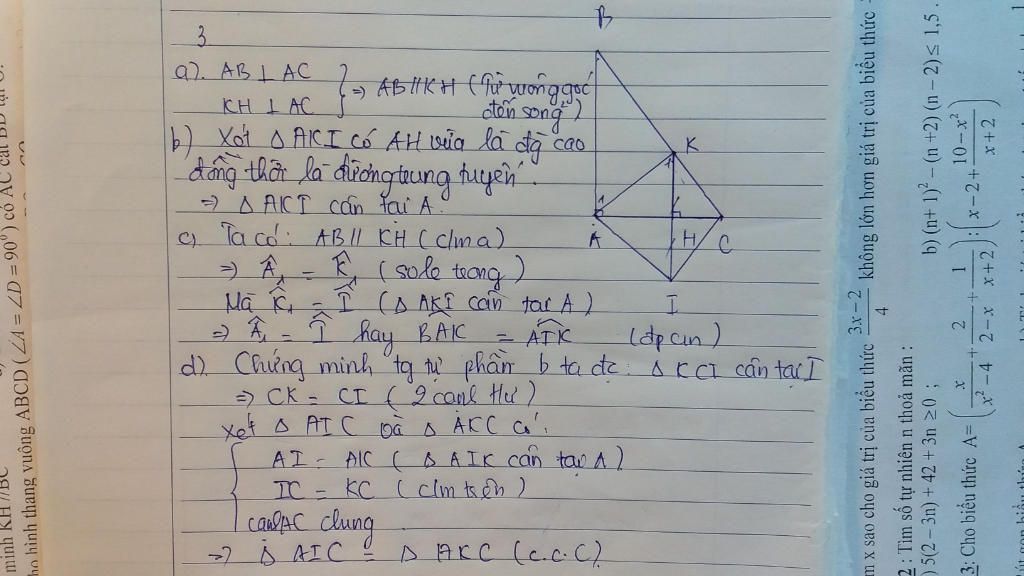 3
a). AB ⊥ AC
KH ⊥ AC } => AB // KH (Từ vuông góc đến song²)
b) Xét △AKI có AH vừa là đg cao
đồng thời là đường trung tuyến.
=> △AKI cân tại A.
c) Ta có: AB // KH (c/m a)
=> Â₁ = K̂₁ (sole trong)
Mà K̂₁ = Î (△AKI cân tại A)
=> Â₁ = Î hay BAK = AIK (đpcm)
d). Chứng minh tg tự phần b ta đc: △KCI cân tại I
=> CK = CI (2 cạnh t/ư)
xét △AIC và △AKC có:
AI = AK (△AIK cân tại A)
IC = KC (c/m trên)
cạnh AC chung
=> △AIC = △AKC (c.c.c)
B
K
A
H
C
I
minh KH//BC
ho hình thang vuông ABCD (∠A = ∠D = 90°) có AC cắt BD tại
m x sao cho giá trị của biểu thức (3x − 2)/4 không lớn hơn giá trị của biểu thức
2: Tìm số tự nhiên n thoả mãn:
) 5(2 − 3n) + 42 + 3n ≥ 0 ;
b) (n + 1)² − (n + 2)(n − 2) ≤ 1,5.
3: Cho biểu thức A = (x/(x² − 4) + 2/(2 − x) + 1/(x + 2)) : (x − 2 + (10 − x²)/(x + 2))